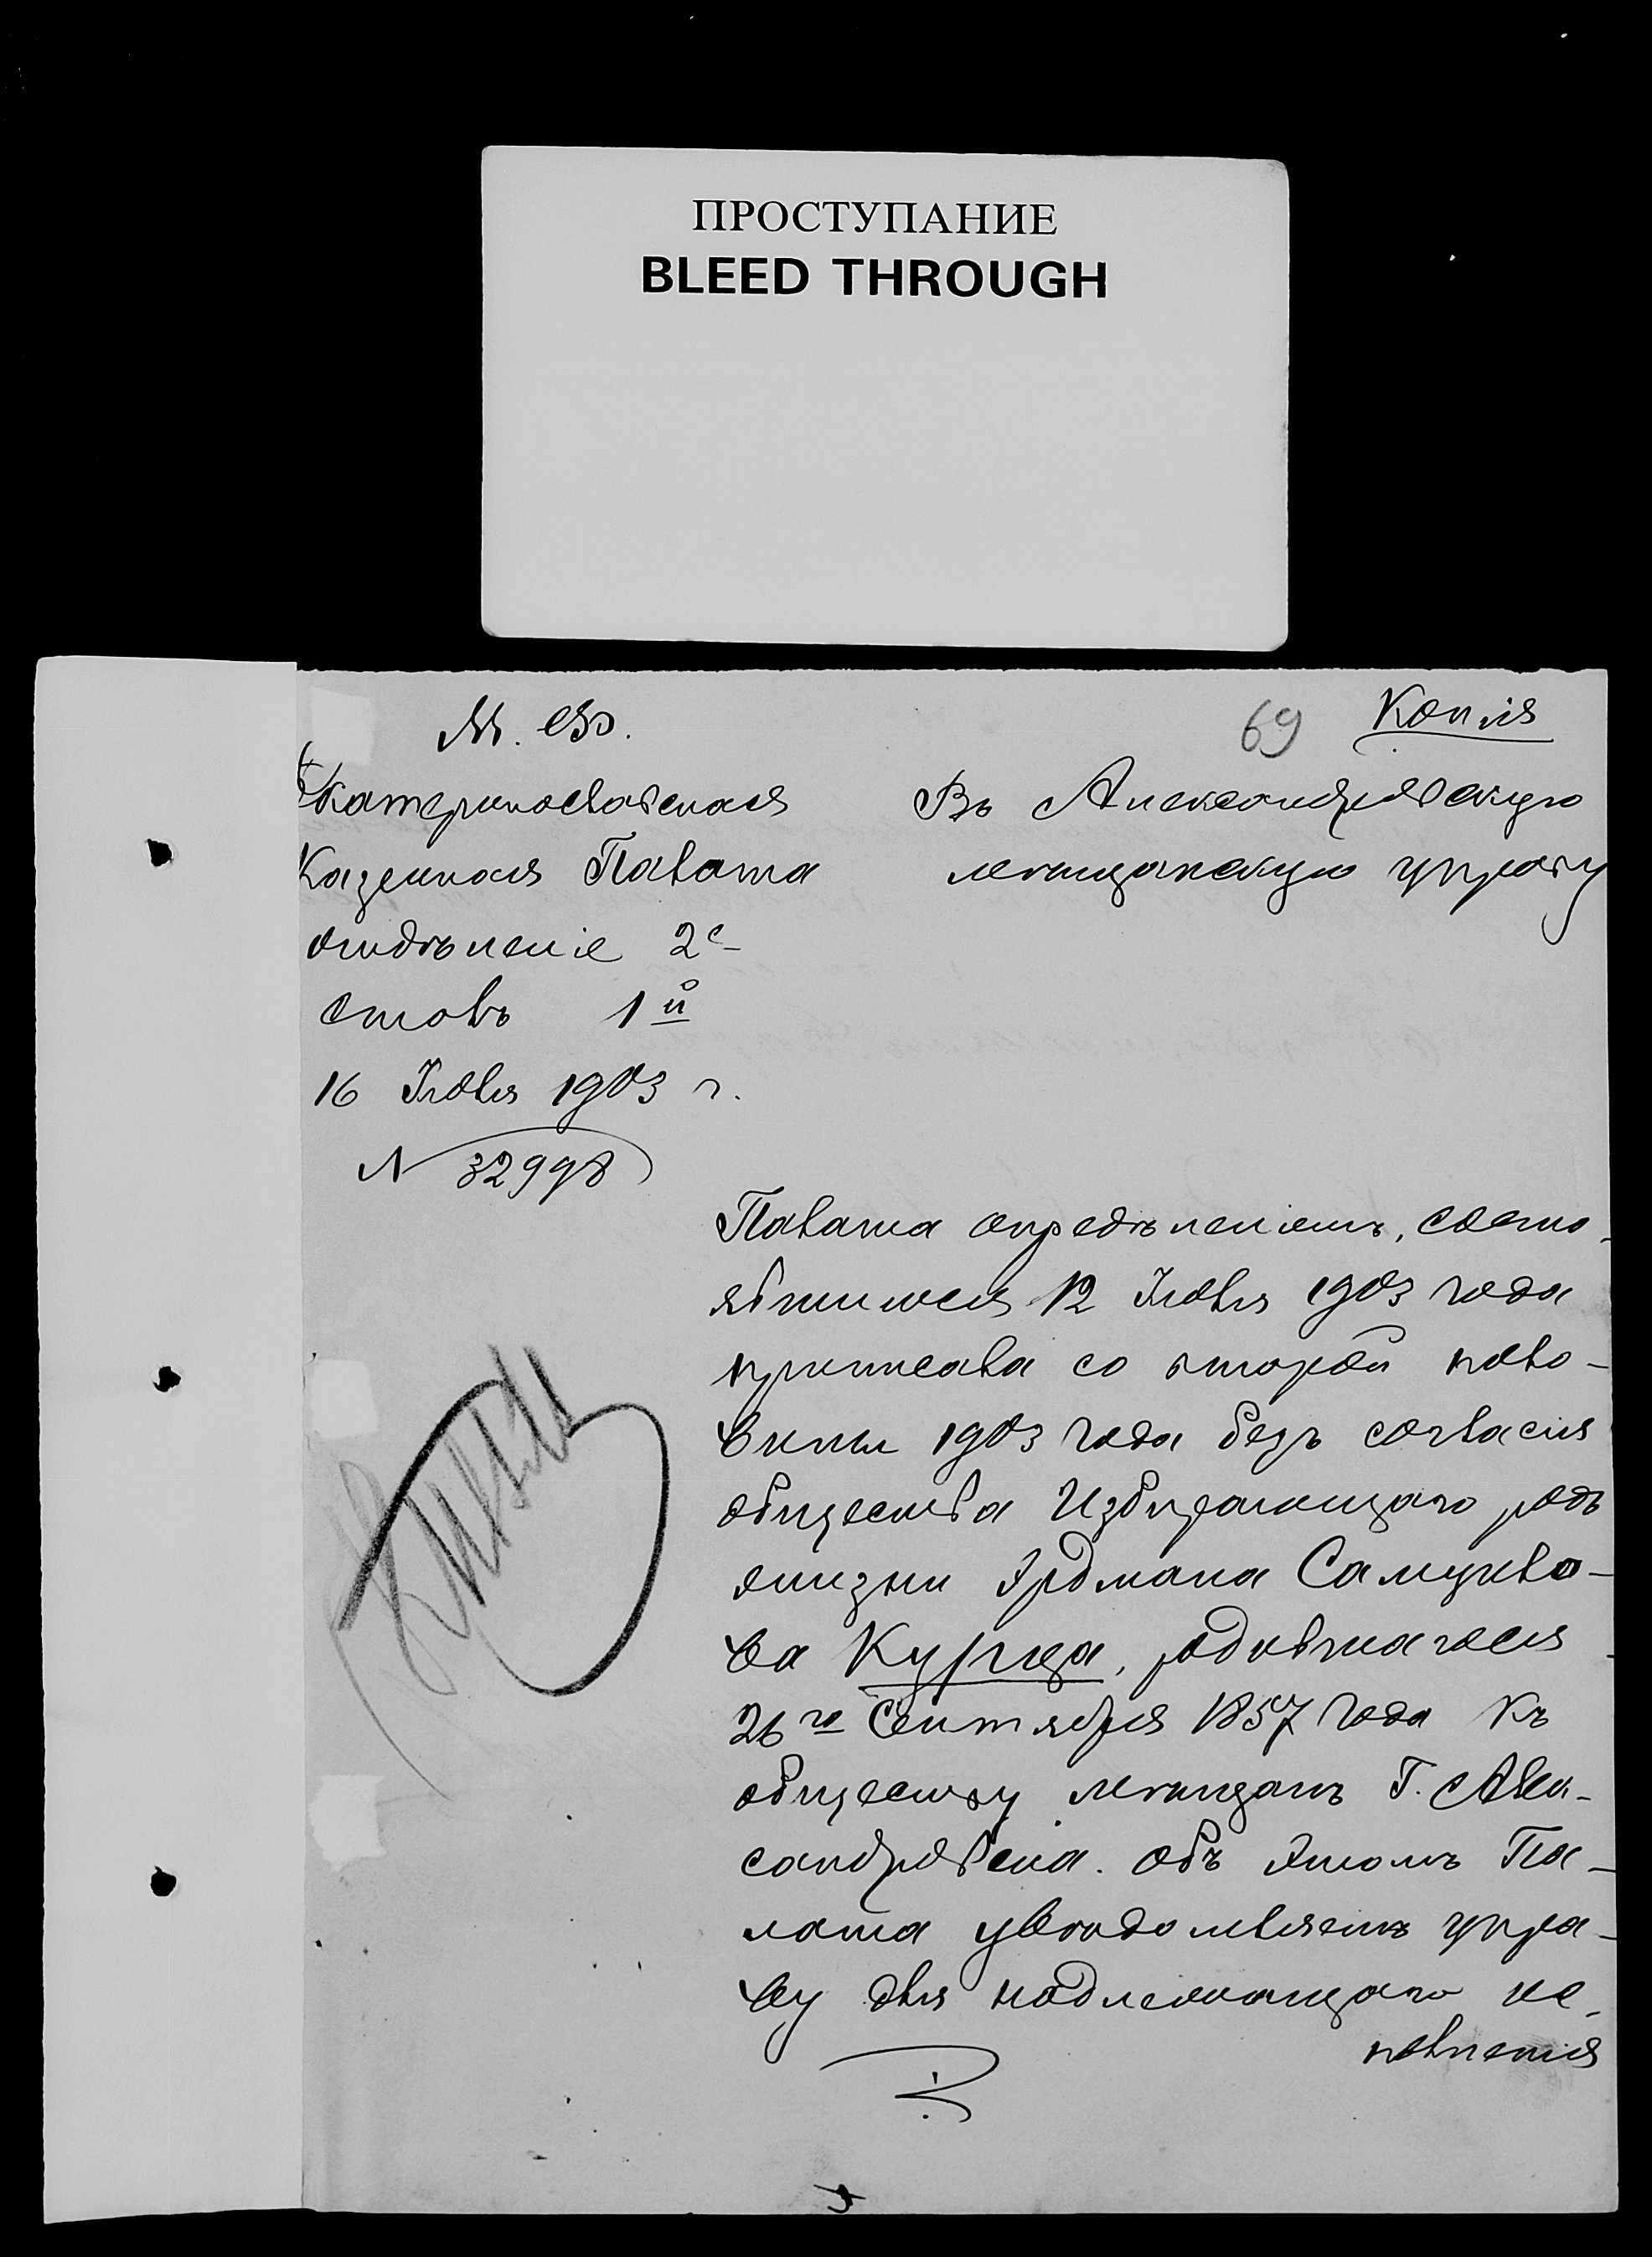 ПРОСТУПАНИЕ
BLEED THROUGH
69
Копія
М. Ф.
Екатеринославская
Казенная Палата
отдѣленіе 2е
столъ 1й
16 Іюля 1903 г.
N 32998
Въ Александровскую
мещанскую управу
Палата опредѣленіемъ, состо-
явшимся 12 Іюля 1903 года
приписала со второй поло-
вины 1903 года безъ согласія
общества Избирающаго родъ
жизни Эрдмана Самуило-
ва Курца, родившагося
26го Сентября 1857 года къ
обществу мещанъ г. Алек-
сандровска. Объ этомъ Па-
лата увѣдомляетъ упра-
ву для надлежащаго ис-
полненія